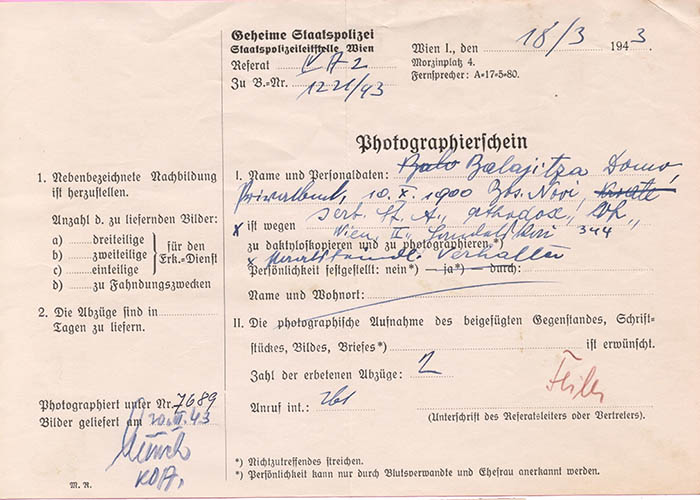 Geheime Staatspolizei
Staatspolizeileitstelle Wien
Referat IV A 2
Zu B.-Nr. 1221/43
Wien I., den 18/3 1943.
Morzinplatz 4.
Fernsprecher: A-17-5-80.
Photographierschein
1. Nebenbezeichnete Nachbildung ist herzustellen.
Anzahl d. zu liefernden Bilder:
a) dreiteilige
b) zweiteilige
c) einteilige
für den Erk.-Dienst
d) zu Fahndungszwecken
2. Die Abzüge sind in
Tagen zu liefern.
Photographiert unter Nr. 7689
Bilder geliefert am 20.III.43
M. R.
I. Name und Personaldaten: Balajitza
10. X. 1900 Novi,
x ist wegen St. A., orthodox,
Wien, II., 344
zu daktyloskopieren und zu photographieren.*)
x Verhalten
Persönlichkeit festgestellt: nein*) — ja*) — durch:
Name und Wohnort:
II. Die photographische Aufnahme des beigefügten Gegenstandes, Schrift-
stückes, Bildes, Briefes*) ist erwünscht.
Zahl der erbetenen Abzüge: 2
Anruf int.:
(Unterschrift des Referatsleiters oder Vertreters).
*) Nichtzutreffendes streichen.
*) Persönlichkeit kann nur durch Blutsverwandte und Ehefrau anerkannt werden.